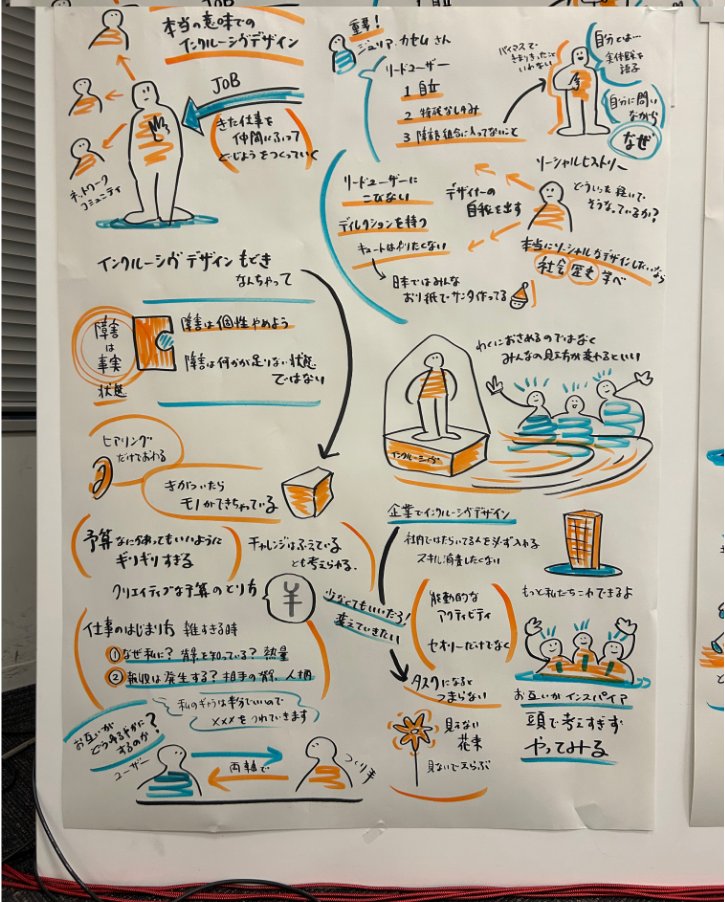 本当の意味での
インクルーシヴデザイン
JOB
きた仕事を
仲間にふって
どじょうをつくっていく
ネットワーク
コミュニティ
重要!
ジュリア・カセムさん
リードユーザー
1 自立
2 特技なしのみ
3 障害組合に入ってないこと
バイアスで
きまりきったこと
いわない
自分とは…
実体験を
語る
自分に問い
ながら
なぜ
リードユーザーに
こびない
ディレクションを持つ
キュートはやりたくない
日本ではみんな
おり紙でサンタ作ってる
デザイナーの
自我を出す
ソーシャルヒストリー
どういった経いで
そうなっているか?
本当にソーシャルなデザインしたいなら
社会 歴史 学べ
インクルーシヴデザインもどき
なんちゃって
障害
は
事実
状態
障害は個性やめよう
障害は何かが足りない状態
ではない
わくにおさめるのではなく
みんなの見え方が変わるといい
インクルーシヴ
ヒアリング
だけでおわる
きがついたら
モノができちゃっている
予算なにがあってもいいように
ギリギリすぎる
チャレンジはふえている
とも考えられる.
クリエイティブな予算のとり方
¥
少なくてもいいだろ!
変えていきたい
仕事のはじまり方 雑すぎる時
① なぜ私に? 背景を知っている? 熱量
② 報収は発生する? 相手の質、人柄
私のギャラは半分でいいので
×××をつれていきます
お互いが
どう高め合う仲に
するのか?
ユーザー
両輪で
つくり手
企業でインクルーシヴデザイン
社内ではたらいてる人を必ず入れる
スキル消費したくない
能動的な
アクティビティ
セオリーだけでなく
もっと私たちこれできるよ
お互いがインスパイア
タスクになると
つまらない
見えない
花束
見ないでえらぶ
頭で考えすぎず
やってみる